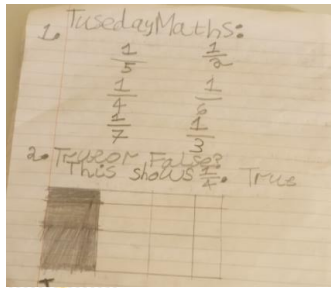 1. TusedayMaths:
1/5 1/2
1/4 1/6
1/7 1/3
2. Treuor False?
This shows 1/4. True